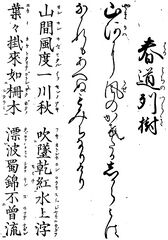 春道列樹
山川に風のかけたるしからみは
なかれもあへぬもみちなりけり
山間風度一川秋 吹墜乾紅水上浮
葉々掛來如柵木 漂波蜀錦不曾流